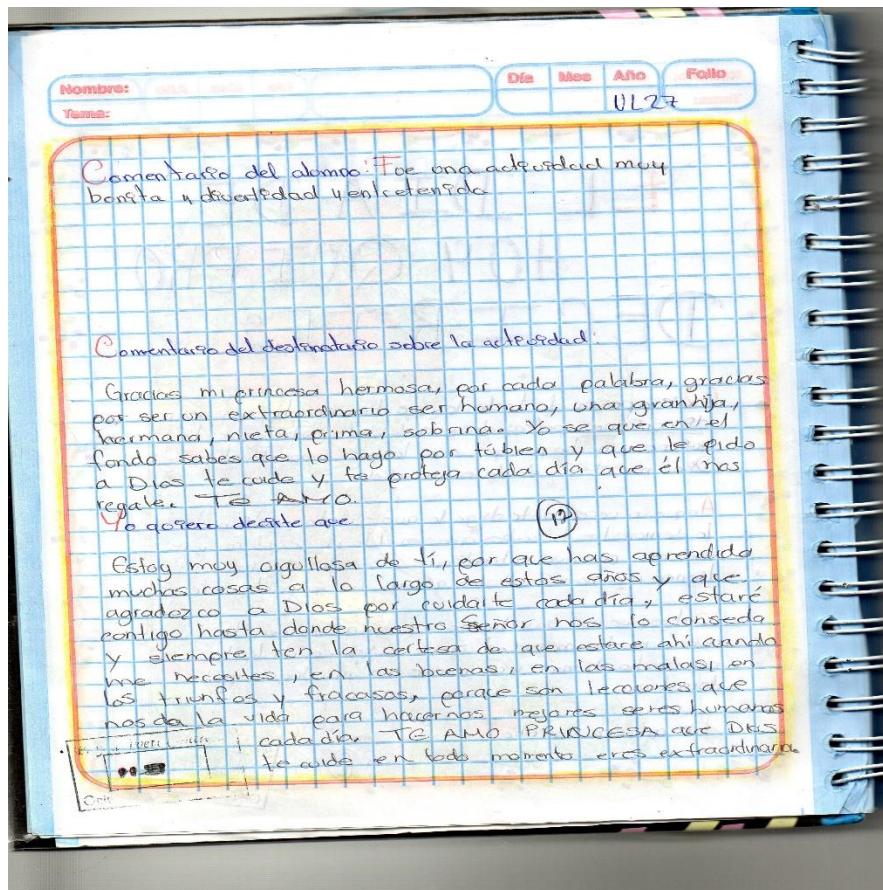 Nombre:
Día Mes Año Folio
Tema:
UL27
Comentario del alumno: Fue una actividad muy
bonita y divertidad y entretenida
Comentario del destinatario sobre la actividad:
Gracias mi princesa hermosa, por cada palabra, gracias
por ser un extraordinario ser humano, una gran hija,
hermana, nieta, prima, sobrina. Yo se que en el
fondo sabes que lo hago por tú bien y que le pido
a Dios te cuide y te proteja cada día que él nos
regale. TE AMO.
Yo quiero decirte que
12
Estoy muy orgullosa de tí, por que has aprendido
muchas cosas a lo largo de estos años y que
agradezco a Dios por cuidarte cada día, estaré
contigo hasta donde nuestro Señor nos lo conseda
y siempre ten la certesa de que estare ahí cuando
me necesites, en las buenas, en las malas, en
los triunfos y fracasos, porque son lecciones que
nos da la vida para hacernos mejores seres humanos
cada día. TE AMO PRINCESA que DIOS
te cuide en todo momento eres extraordinaria.